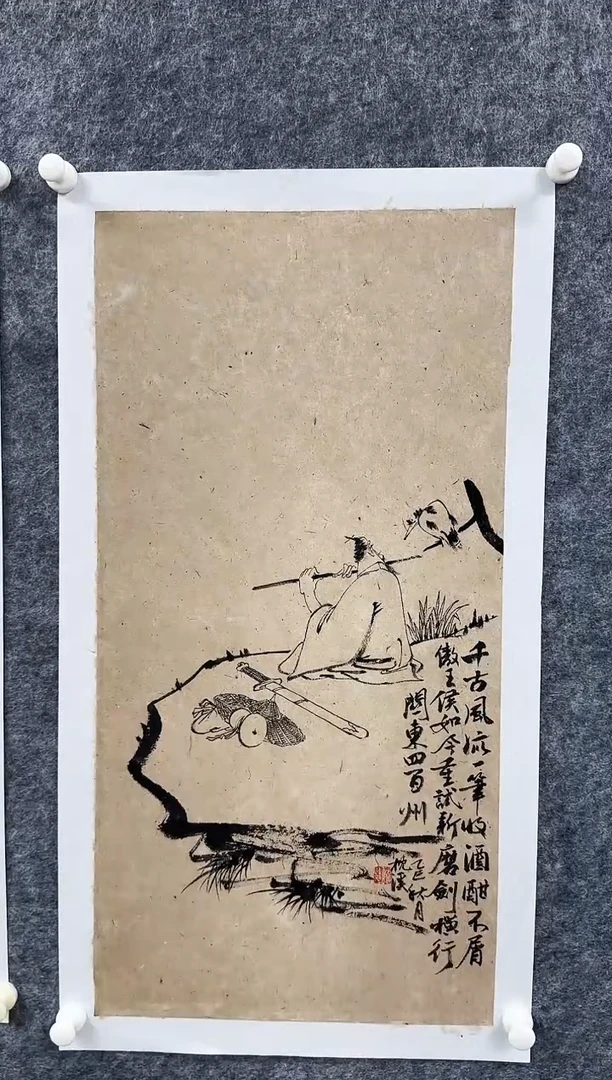 千古風流一筆收酒酣不屑
傲王侯如今重試新磨劍橫行
関東四百州
乙巳秋月
枕溪